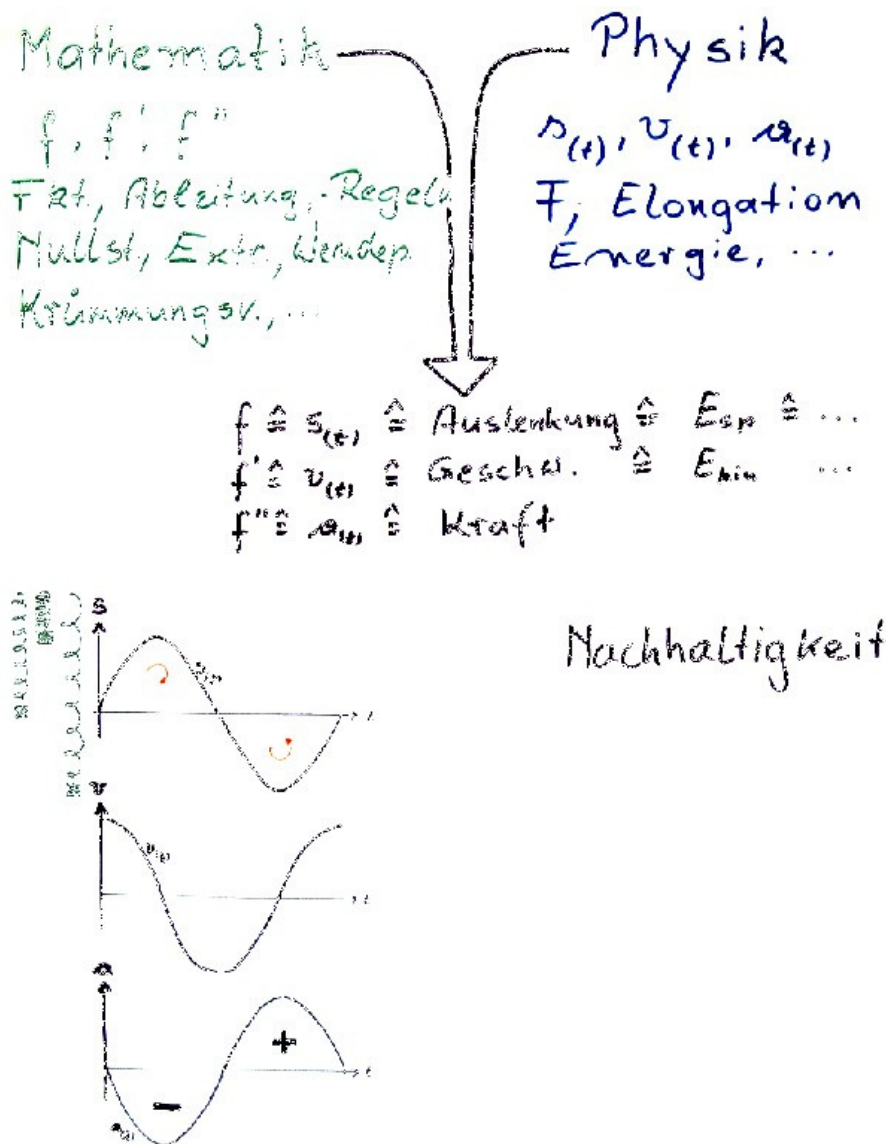 Mathematik
f, f', f''
Fkt., Ableitung, -Regeln
Nullst, Extr., Wendep.
Krümmungsv., ...
Physik
s(t), v(t), a(t)
F, Elongation
Energie, ...
f ≙ s(t) ≙ Auslenkung ≙ Esp ≙ ...
f' ≙ v(t) ≙ Geschw. ≙ Ekin ...
f'' ≙ a(t) ≙ Kraft
Nachhaltigkeit
s
s(t)
t
v
v(t)
t
a
+
t
-
a(t)